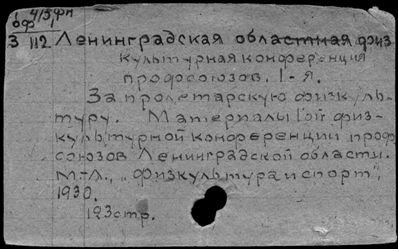 1 415фп
оф 1
З 112 Ленинградская областная физ
культурная конференция
профсоюзов. I-я.
За пролетарскую физкуль-
туру. Материалы I-ой физ-
культурной конференции проф
союзов Ленинградской области.
М-Л., "Физкультура и спорт",
1930.
123 стр.